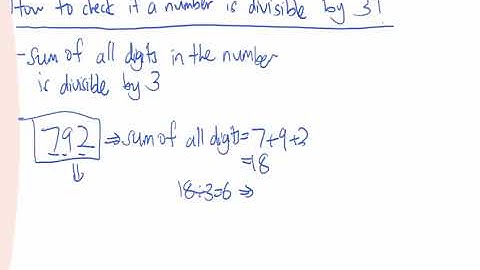 How to check if a number is divisible by 3!
-sum of all digits in the number
is divisible by 3
792 ⇒ sum of all digits = 7+9+2
=18
18÷3=6 ⇒